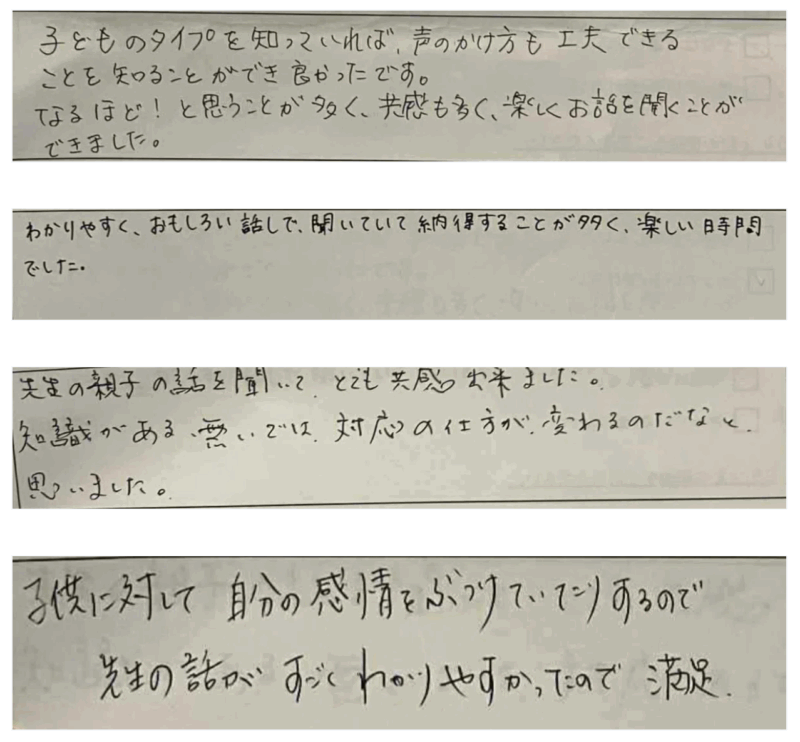 子どものタイプを知っていれば、声のかけ方も工夫できる
ことを知ることができ良かったです。
なるほど！と思うことが多く、共感も多く、楽しくお話を聞くことが
できました。
わかりやすく、おもしろい話しで、聞いていて納得することが多く、楽しい時間
でした。
先生の親子の話を聞いて、とても共感出来ました。
知識がある、無いでは、対応の仕方が、変わるのだなと、
思いました。
子供に対して自分の感情をぶつけていたりするので
先生の話がすごくわかりやすかったので満足.